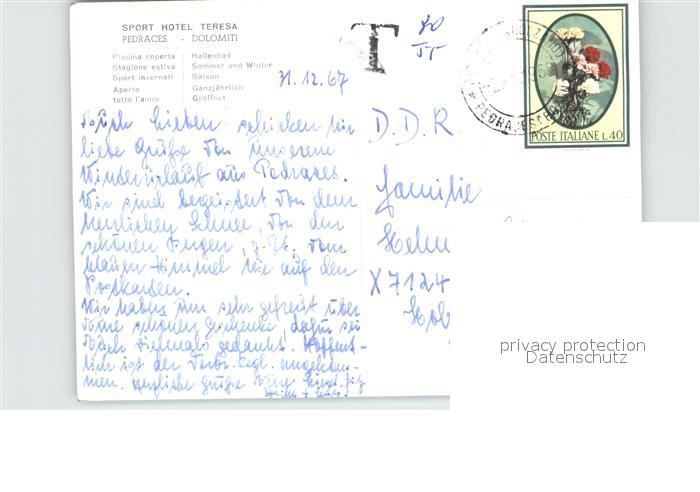 SPORT HOTEL TERESA
PEDRACES - DOLOMITI
Piscina coperta Hallenbad
Stagione estiva Sommer und Winter
Sport invernali Saison
Aperto Ganzjährlich
tutto l'anno Geöffnet
T
31.12.67
POSTE ITALIANE L.40
Euch Lieben schicken wir
liebe Grüße von unserem
Winterurlaub aus Pedraces.
Wir sind begeistert von dem
herrlichen Schnee, von den
schönen Bergen, z. Zt. vom
blauen Himmel wie auf den
Postkarten.
Wir haben uns sehr gefreut über
Eure schönen Geschenke, dafür sei
Euch vielmals gedankt. Hoffent-
lich ist der ungekom-
men. Herzliche Grüße
D.D.R.
Familie
X 7124
privacy protection
Datenschutz